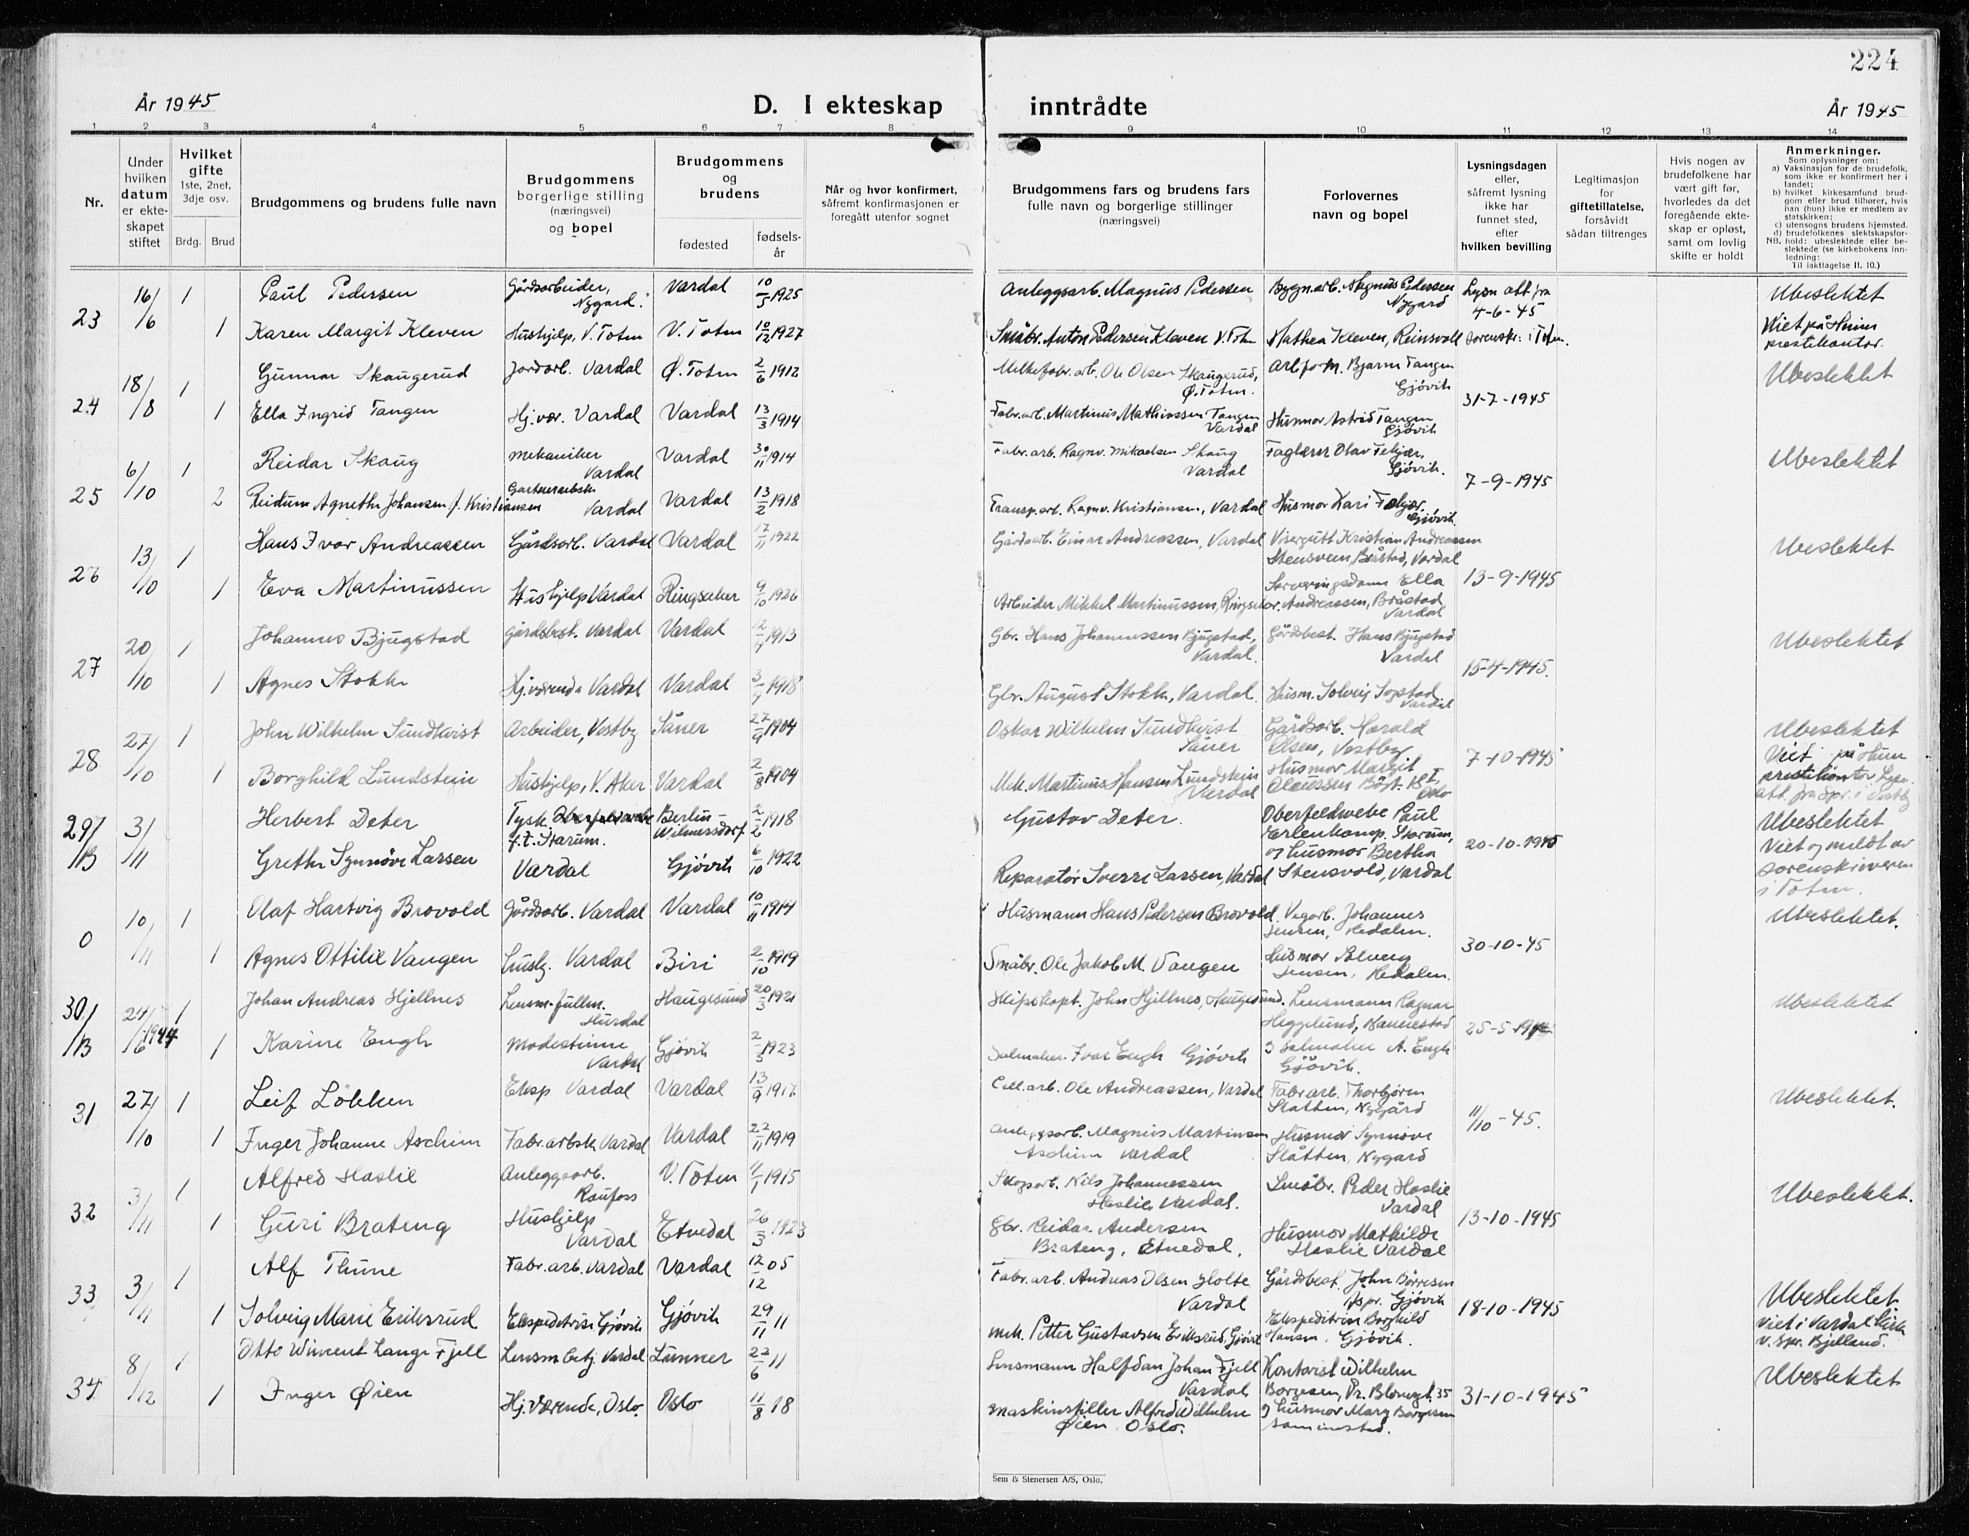 224
År 1945
D. I ekteskap inntrådte
År 1945
1 2 3 4 5 6 7 8 9 10 11 12 13 14
Nr.
Under hvilken datum er ekteskapet stiftet
Hvilket gifte
1ste, 2net, 3dje osv.
Brdg. Brud
Brudgommens og brudens fulle navn
Brudgommens borgerlige stilling (næringsvei) og bopel
Brudgommens og brudens
fødested
fødselsår
Når og hvor konfirmert, såfremt konfirmasjonen er foregått utenfor sognet
Brudgommens fars og brudens fars fulle navn og borgerlige stillinger (næringsvei)
Forlovernes navn og bopel
Lysningsdagen eller, såfremt lysning ikke har funnet sted, efter hvilken bevilling
Legitimasjon for giftetillatelse, forsåvidt sådan tiltrenges
Hvis nogen av brudefolkene har vært gift før, hvorledes da det foregående ekteskap er opløst, samt om lovlig skifte er holdt
Anmerkninger.
Som oplysninger om:
a) Vaksinasjon for de brudefolk, som ikke er konfirmert her i landet;
b) hvilket kirkesamfund brudgom eller brud tilhører, hvis han (hun) ikke er medlem av statskirken;
c) utensogns brudens hjemsted.
d) brudefolkenes slektskapsforhold: ubeslektede eller beslektede (se kirkebokens innledning:
NB. Til iakttagelse II. 10.)
23 16/6 1 Paul Pedersen Gårdsarbeider, Nygard. Vardal 10/5 1925 Anleggsarb. Magnus Pedersen Bygn.arb. Magnus Pedersen Nygard Lysn. att. fra 4-6-45 Ubeslektet
1 Karen Margit Kleven Hushjelp, V. Toten V. Toten 10/12 1927 Småbr. Anton Pedersen Kleven V. Toten Mathea Kleven, Reinsvoll sorenskr. i Toten. Viet på Hunn prestekontor.
24 18/8 1 Gunnar Skaugerud Jordarb. Vardal Ø. Toten 2/6 1912 Melkefabr. arb. Ole Olsen Skaugerud, Ø. Toten. Arb.form. Bjarne Tangen Gjövik 31-7-1945 Ubeslektet
1 Ella Ingrid Tangen Hj.vær. Vardal Vardal 13/3 1914 Fabr.arb. Martinius Mathiassen Tangen Vardal Husmor Astrid Tangen Gjövik
25 6/10 1 Reidar Skaug Mekaniker Vardal Vardal 30/11 1914 Fabr. arb. Ragnv. Mikaelsen Skaug Vardal Faglærer Olav Felgjær, Gjövik. 7-9-1945 Ubeslektet
2 Reidun Agnethe Johansen f. Kristiansen Gartnerarbske Vardal Vardal 13/2 1918 Transp.arb. Ragnv. Kristiansen, Vardal Husmor Kari Felgjær. Gjövik.
26 13/10 1 Hans Ivar Andreassen Gårdsarb. Vardal Vardal 17/11 1922 Gårdsarb. Einar Andreassen, Vardal Visergutt Kristian Andreassen Stensveen, Bråstad, Vardal 13-9-1945 Ubeslektet
1 Eva Martinussen Hushjelp Vardal Ringsaker 9/10 1926 Arbeider Mikkel Martinussen, Ringsaker Serveringsdame Ella Andreassen, Bråstad Vardal
27 20/10 1 Johannes Bjugstad gårdsbest. Vardal Vardal 1913 Gbr. Hans Johannessen Bjugstad, Vardal. Gårdsbest. Hans Bjugstad Vardal 15-4-1945. Ubeslektet
1 Agnes Stokke Hj.værende Vardal Vardal 1918 Gbr. August Stokke, Vardal Husm. Solveig Sogstad Vardal
28 27/10 1 John Wilhelm Sundkvist Arbeider, Vestby Såner 27/9 1904 Oskar Wilhelm Sundkvist Såner Gårdsarb. Harald Olsen, Vestby 7-10-1945 Ubeslektet
1 Borghild Lundstein Hushjelp, V. Aker Vardal 2/8 1904 Mek. Martinius Hansen Lundstein Vardal Husmor Margit Oslo Viet på Hunn prestekontor Lysn. att. fra spr. i Vestby
29/B 3/11 Herbert Deter Tysk f.t. Starum. Berlin-Wilmersdorf 2/2 1918 Gustav Deter. Oberfeldwebe Paul Erlenkamp. Starum, 20-10-1945 Ubeslektet
Grethe Synnöve Larsen Vardal Gjövik 6/10 1922 Reparatör Sverre Larsen, Vardal og husmor Bertha Stensvold, Vardal Viet og meldt av sorenskriveren i Toten.
0 10/11 1 Olaf Hartvig Brovold Gårdsarb. Vardal Vardal 10/11 1914 Husmann Hans Pedersen Brovold. Vegarb. Johannes Jensen, Redalen. 30-10-45 Ubeslektet.
1 Agnes Ottilie Vangen Hushj. Vardal Biri 2/10 1919 Småbr. Ole Jakob M. Vangen Husmor Solveig Jensen, Redalen.
30/B 24/6 1944 1 Johan Andreas Hjellnes Lensm.fullm. Hurdal Haugesund 20/3 1921 Skipskapt. John Hjellnes, Haugesund. Lensmann Ragnar Heggelund, Bannestad 25-5- Ubeslektet
1 Karine Engh Modestinne Vardal Gjövik 2/5 1923 Salmaker. Ivar Engh Gjövik og Salmaker A. Engh Gjövik.
31 27/10 1 Leif Lökken Eksp Vardal Vardal 13/9 1917 Cell.arb. Ole Andreassen, Vardal Fabr.arb. Thorbjörn Slåtten, Nygård 11/10-45. Ubeslektet.
1 Inger Johanne Aschim Fabr.arbske Vardal Vardal 22/11 1919 Anleggsarb. Magnus Martinsen Aschim Vardal Husmor Synnöve Slåtten, Nygard
32 3/11 1 Alfred Haslie Anleggsarb. Raufoss V. Toten 4/1 1915 Skogsarb. Nils Johannessen Haslie, Vardal. Småbr. Peder Haslie Vardal 13-10-1945 Ubeslektet.
1 Guri Brateng Hushjelp Vardal Etnedal 26/3 1923 Gbr. Reidar Andersen Brateng, Etnedal. Husmor Mathilde Haslie Vardal
33. 3/11 1 Alf Thune Fabr. arb. Vardal Vardal 12/12 05 Fabr. arb. Andreas Olsen Holte Vardal Gårdsbest. John Börresen Gjövik 18-10-1945 Ubeslektet
1 Solveig Marie Eriksrud Ekspeditrise Gjövik Gjövik 29/11 11 Mek. Petter Gustavsen Eriksrud, Gjövik Ekspeditrise Borghild Hansen, Gjövik. Viet i Vardal kirke v. spr. Bjelland.
34 8/12 1 Otto Wincent Lange Fjell Lensm.betj. Vardal Lunner 22/6 11 Lensmann Halfdan Johan Fjell Vardal Kontorist Wilhelm Borgesen, Pr. Blomsgt. 35 31-10-1945 Ubeslektet
1 Inger Øien Hj.værende, Oslo. Oslo 11/8 18 Maskinstiller Alfred Wilhelm Øien, Oslo. og husmor Mary Borgesen sammested.
Sem & Stenersen A/S, Oslo.